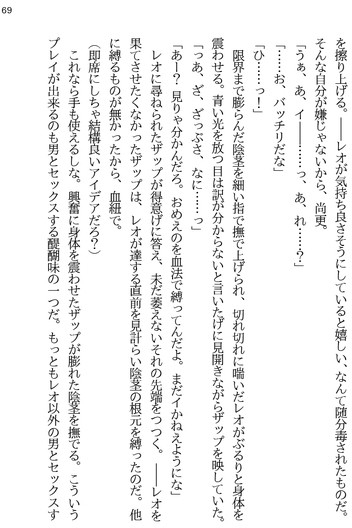 69
を擦り上げる。――レオが気持ち良さそうにしていると嬉しい、なんて随分毒されたものだ。
そんな自分が嫌じゃないから、尚更。
「うぁ、あ、イ――……っ、あ、れ……？」
「……お、バッチリだな」
「ひ……っ！」
限界まで膨らんだ陰茎を細い指で撫で上げられ、切れ切れに喘いだレオがぶるりと身体を
震わせる。青い光を放つ目は訳が分からないと言いたげに見開きながらザップを映していた。
「っあ、ざ、ざっぷさ、なに……っ」
「あー？　見りゃ分かんだろ。おめえのを血法で縛ってんだよ。まだイかねえようにな」
レオに尋ねられたザップが得意げに答え、未だ萎えないそれの先端をつつく。――レオを
果てさせたくなかったザップは、レオが達する直前を見計らい陰茎の根元を縛ったのだ。他
に縛るものが無かったから、血紐で。
（即席にしちゃ結構良いアイデアだろ？）
これなら手も使えるしな。興奮に身体を震わせたザップが膨れた陰茎を撫でる。こういう
プレイが出来るのも男とセックスする醍醐味の一つだ。もっともレオ以外の男とセックスす